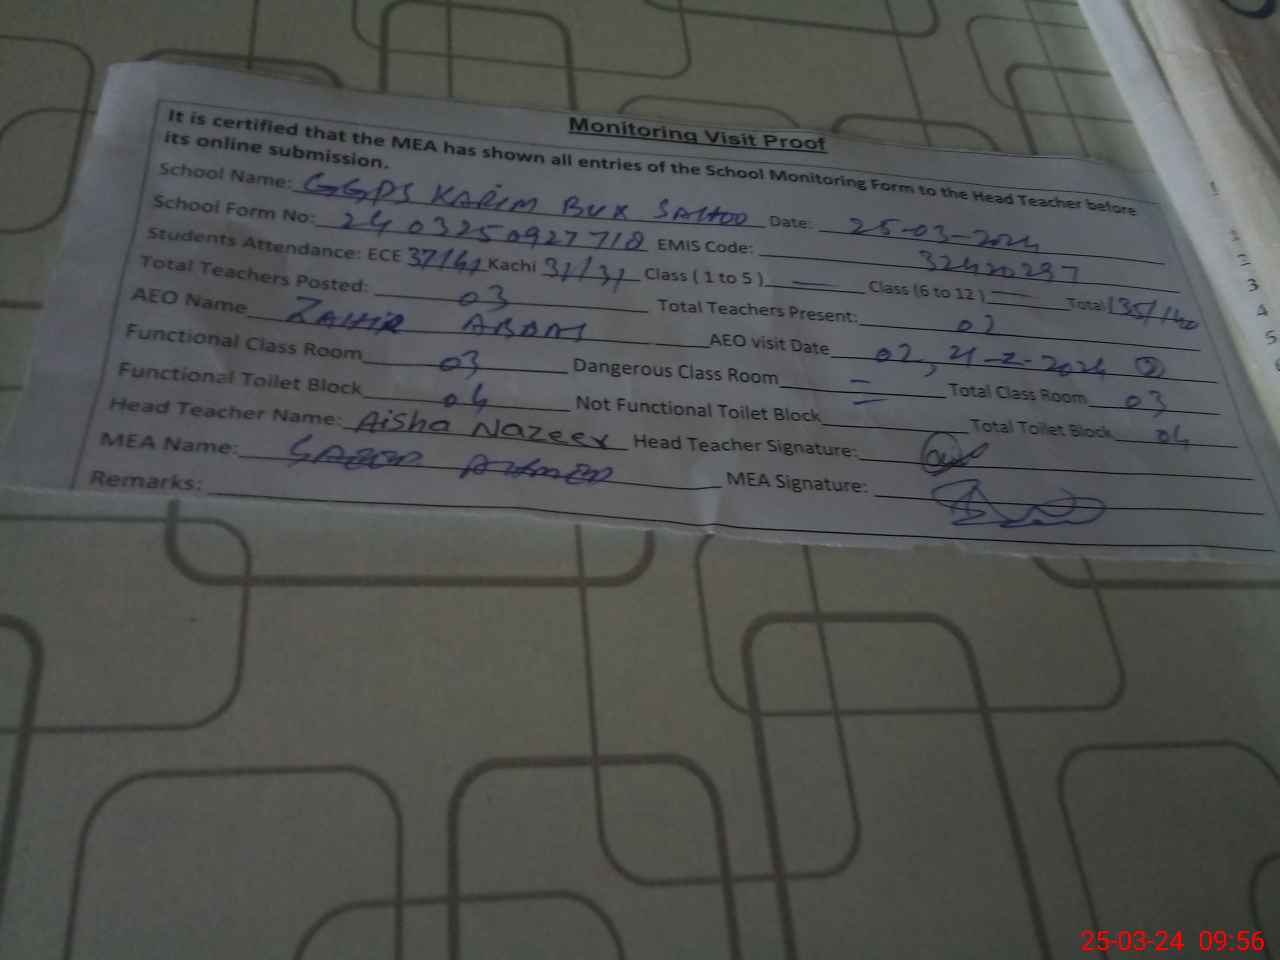 Monitoring Visit Proof
It is certified that the MEA has shown all entries of the School Monitoring Form to the Head Teacher before
its online submission.
School Name: GGPS KARIM BUX SAHOO Date: 25-03-2024
School Form No: 2403250927718 EMIS Code: 32420297
Students Attendance: ECE 37/41 Kachi 31/31 Class ( 1 to 5 ) — Class (6 to 12 ) — Total 135/140
Total Teachers Posted: 03 Total Teachers Present: 03
AEO Name ZAHIR AEO visit Date 02, 21-2-2024
Functional Class Room 03 Dangerous Class Room = Total Class Room 03
Functional Toilet Block 04 Not Functional Toilet Block Total Toilet Block 04
Head Teacher Name: Aisha Nazeer Head Teacher Signature:
MEA Name: AHMED MEA Signature:
Remarks:
1
2
3
4
5
25-03-24 09:56